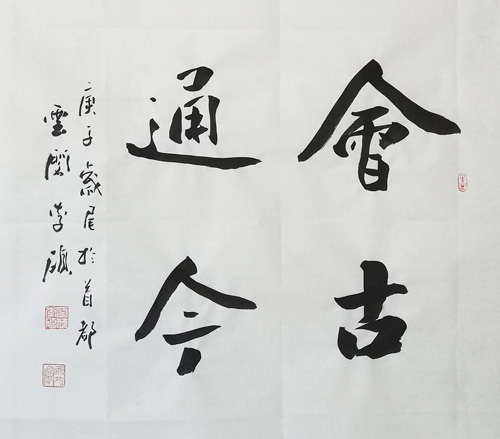 會古
通今
庚子歲尾於首都
雲 李